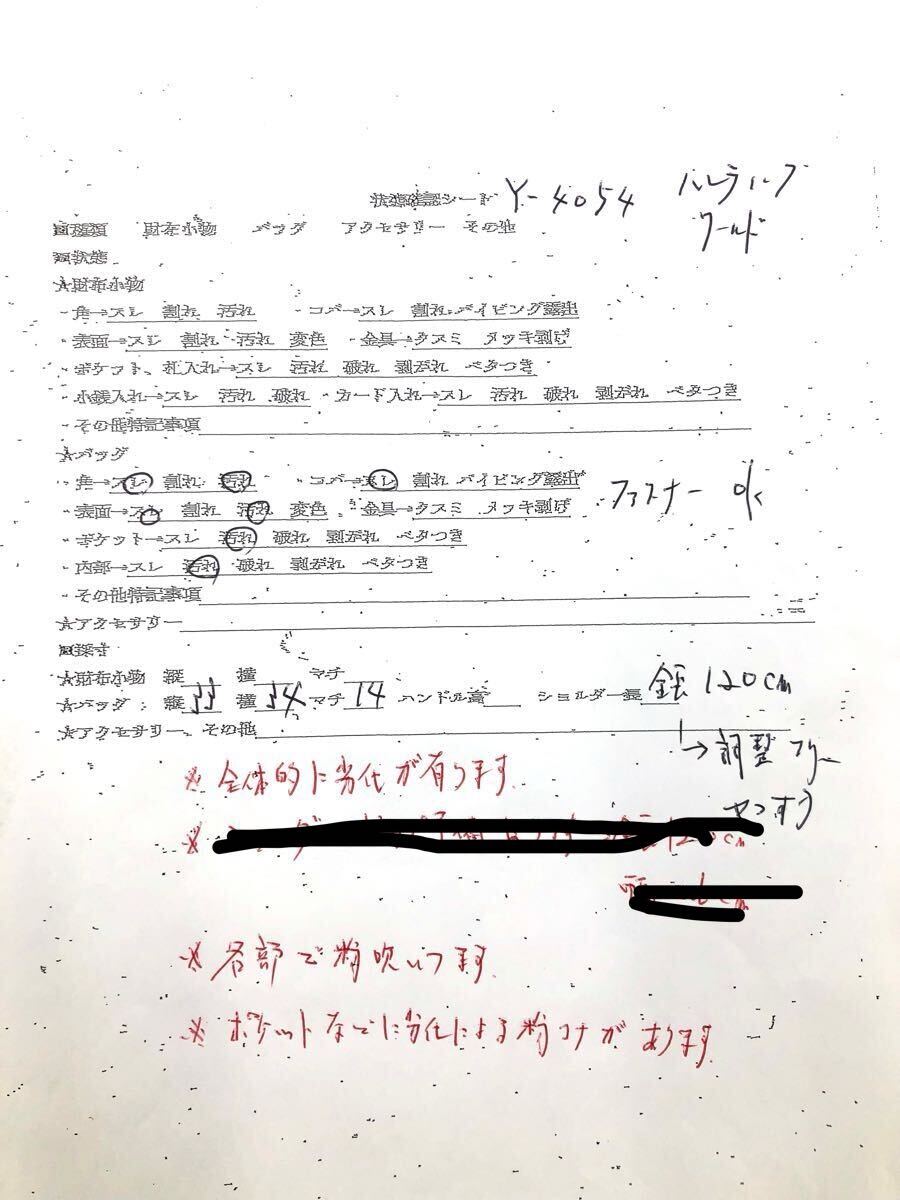 状態確認シート Y-4054 ハンティング
ワールド
■種類 財布小物 バッグ アクセサリー その他
■状態
★財布小物
・角→スレ 割れ 汚れ ・コバ→スレ 割れ パイピング露出
・表面→スレ 割れ 汚れ 変色 ・金具→クスミ メッキ剥げ
・ポケット、札入れ→スレ 汚れ 破れ 剥がれ ベタつき
・小銭入れ→スレ 汚れ 破れ ・カード入れ→スレ 汚れ 破れ 剥がれ ベタつき
・その他特記事項
★バッグ
・角→スレ 割れ 汚れ ・コバ→スレ 割れ パイピング露出
ファスナー ok
・表面→スレ 割れ 汚れ 変色 ・金具→クスミ メッキ剥げ
・ポケット→スレ 汚れ 破れ 剥がれ ベタつき
・内部→スレ 汚れ 破れ 剥がれ ベタつき
・その他特記事項
★アクセサリー
■採寸
★財布小物 縦 横 マチ
★バッグ: 縦 33 横 34 マチ 14 ハンドル高 ショルダー長 全長 120cm
★アクセサリー、その他
→調整
※全体的に劣化が有ります
※
cm
※各部で粉吹いてます
※ポケットなどに劣化による粉コナがあります